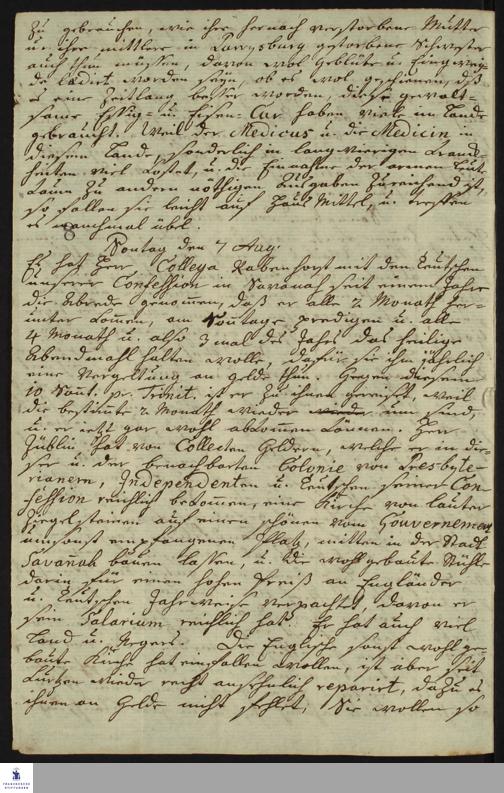 zu gebrauchen, wie ihre hernach verstorbene Mutter
u. ihre mittlere in Purrysburg gestorbene Schwester
auch thun müssen, davon wol Geblüte u. Eingewey-
de lædirt worden seyn, ob es wol geschienen, daß
es eine Zeitlang besser worden, diese gewalt-
same Essig- u. Eisen-Cur haben viele im Lande
gebraucht. Weil der Medicus u. die Medicin in
diesem Lande, sonderlich in langwierigen Kranck-
heiten viel kostet, u. die Einnahme der armen Leute
kaum zu andern nöthigen Ausgaben zureichend ist,
so fallen sie leicht auf Haus Mittel, u. treffen
es manchmal übel.
8 Sontag den 7 Aug.
Es hat Herr Collega Rabenhorst mit den Teutschen
unserer Confession in Savanah seit einem Jahre
die Abrede genommen, daß er alle 2 Monath her-
unter kommen, am Sontage predigen u. alle
4 Monath u. also 3 mal des Jahrs das heilige
Abendmahl halten wolle, dafür sie ihm jährlich
eine Vergeltung an Gelde thun. Gegen diesen
10 Sont. p. Trinit. ist er zu ihnen gereiset, weil
die bestimte 2 Monath wieder um sind,
u. er jetzt gar wohl abkommen können. Herr
Züblin hat von Collecten Geldern, welche er in die-
ser u. der benachbarten Colonie von Presbyte-
rianern, Independenten u. Teutschen seiner Con-
fession reichlich bekommen, eine Kirche von lauter
Ziegelsteinen auf einem schönen vom Gouvernement
umsonst empfangenen Platz, mitten in der Stadt
Savañah bauen lassen, u. die wohl gebaute Stühle
darin für einen hohen Preiß an Engländer
u. Teutschen Jahrweise verpachtet, davon er
sein Salarium reichlich hat. Er hat auch viel
Land u. Negers. Die Englische sonst wohl ge-
baute Kirche hat einfallen wollen, ist aber seit
kurtzen wieder recht ansehnlich reparirt, dazu es
ihnen an Gelde nicht fehlet. Sie wollen so
FRANCKESCHE
STIFTUNGEN